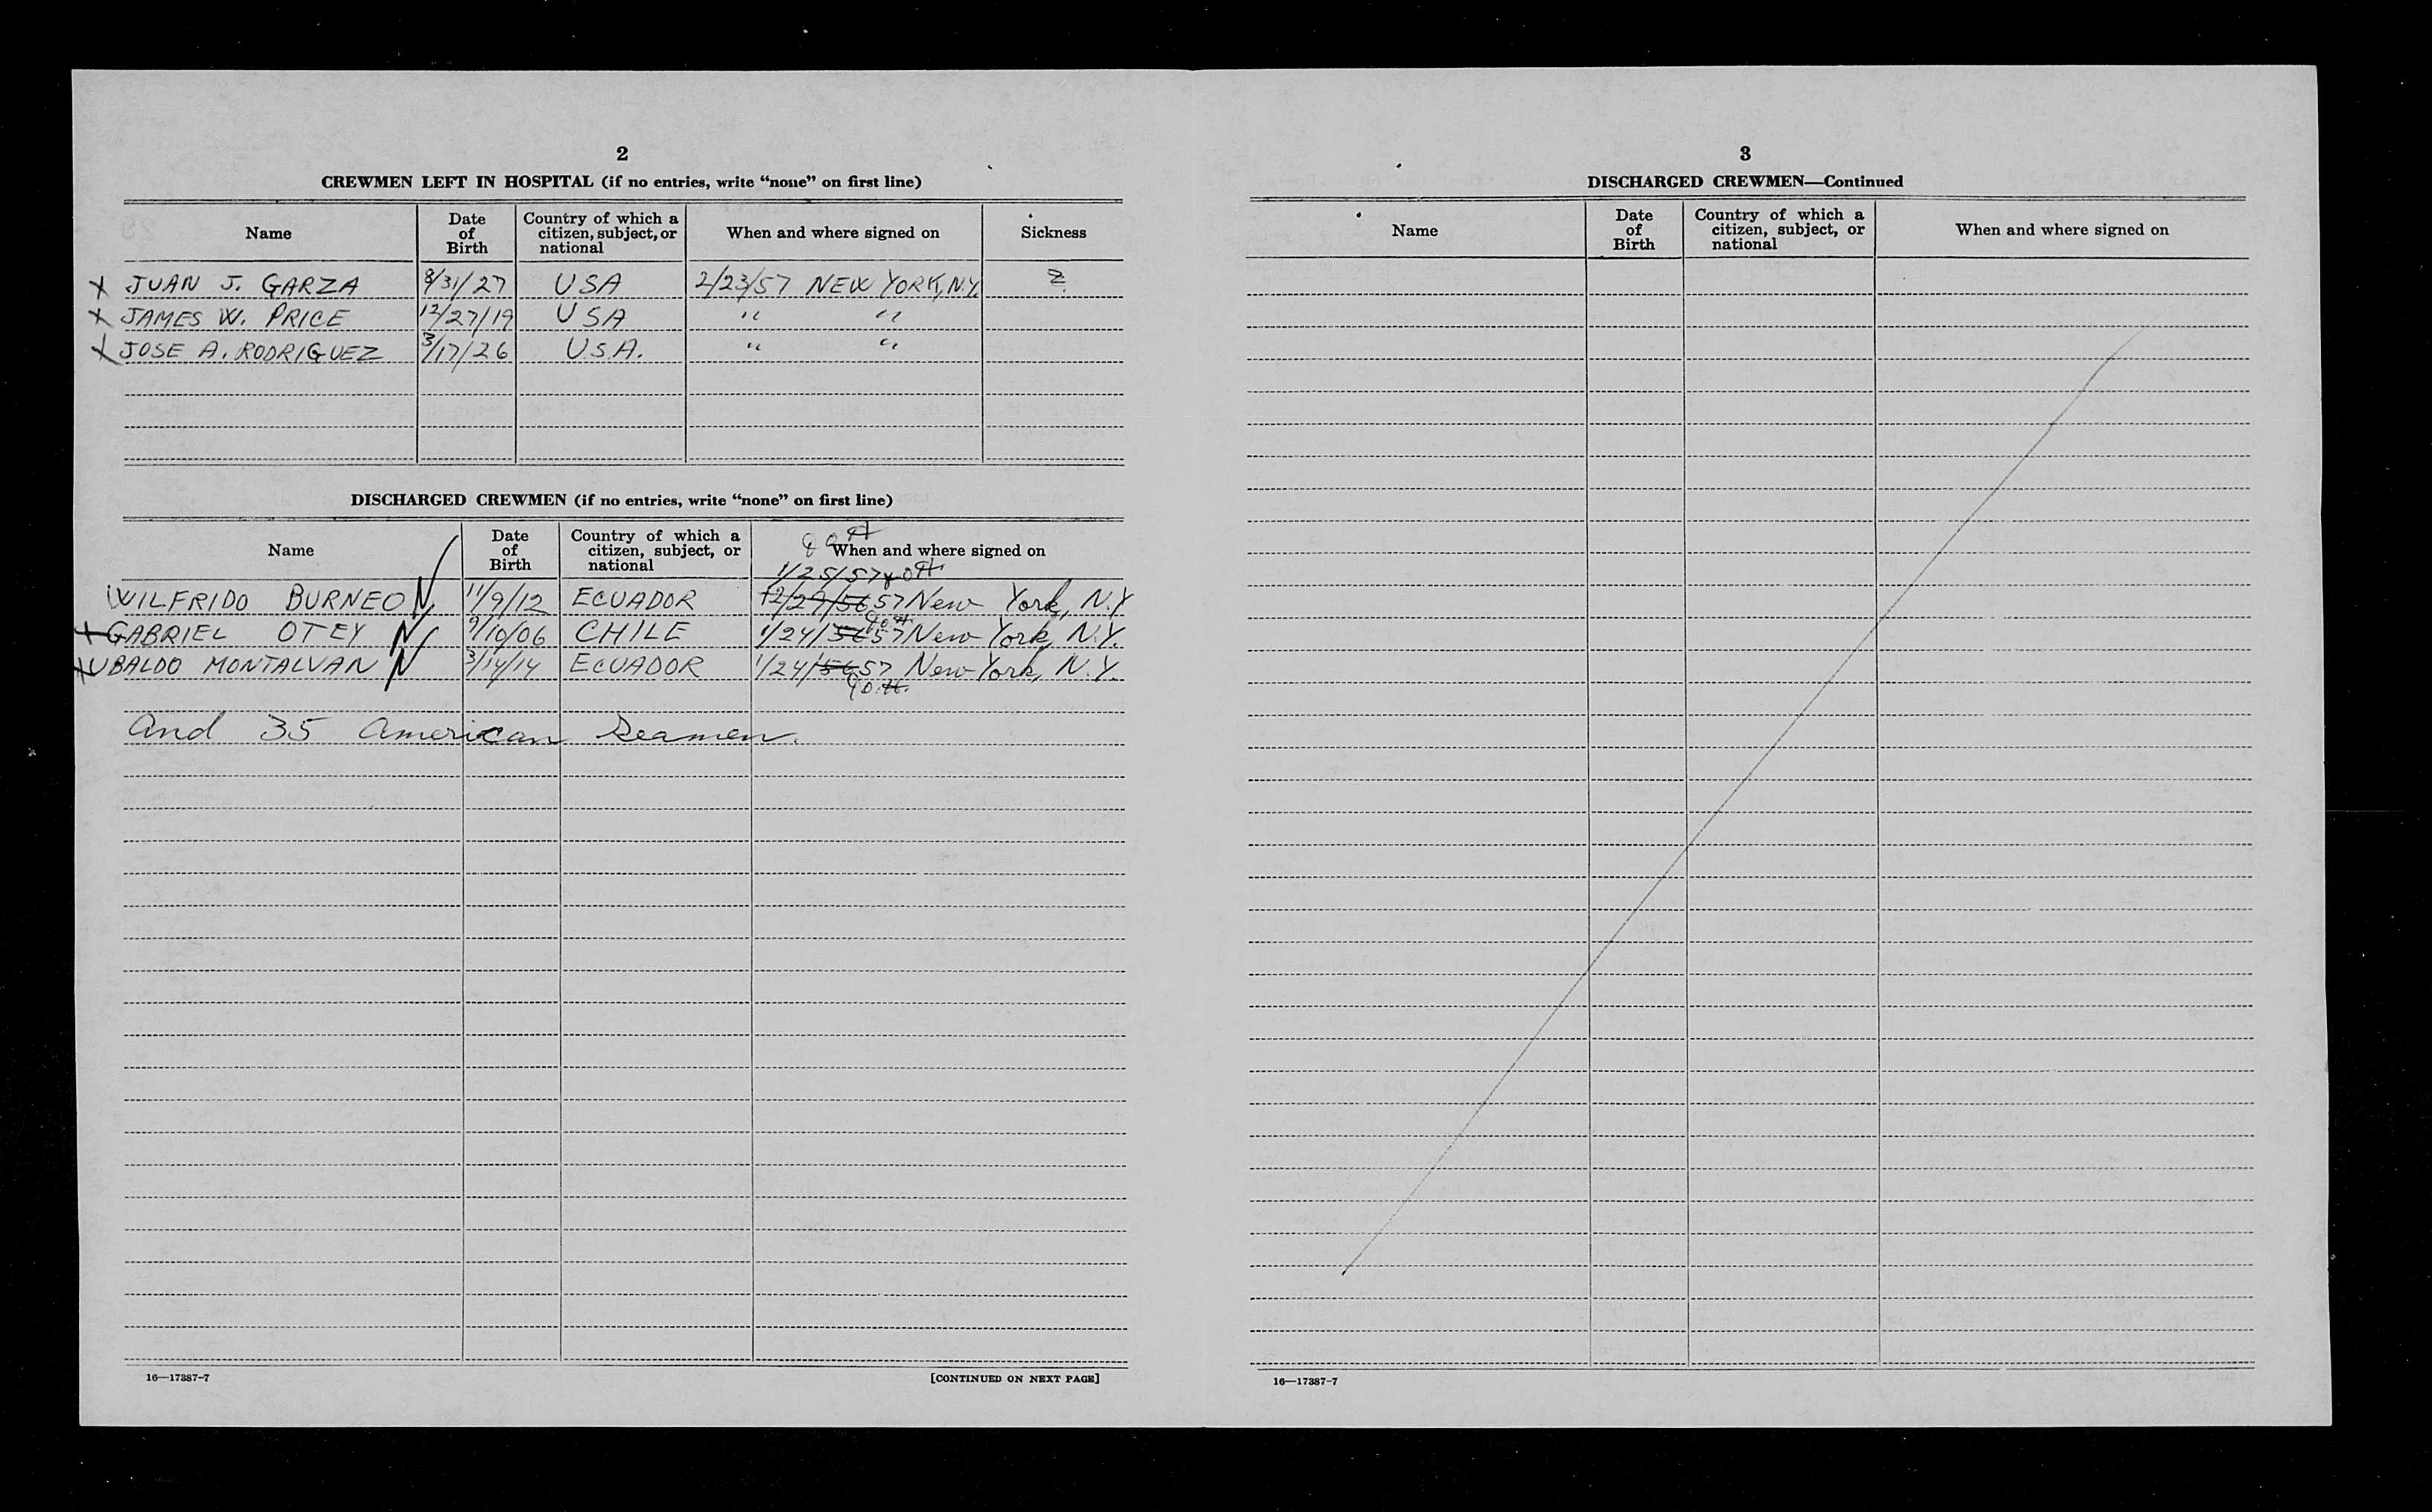 2
CREWMEN LEFT IN HOSPITAL (if no entries, write “none” on first line)
Name
Date of Birth
Country of which a citizen, subject, or national
When and where signed on
Sickness
X JUAN J. GARZA 8/31/27 USA 2/23/57 NEW YORK, N.Y.
X JAMES W. PRICE 12/27/19 USA " "
X JOSE A. RODRIGUEZ 3/17/26 U.S.A. " "
DISCHARGED CREWMEN (if no entries, write “none” on first line)
Name
Date of Birth
Country of which a citizen, subject, or national
When and where signed on
1/25/57
WILFRIDO BURNEO N 11/9/12 ECUADOR 12/29/56 57 New York, N.Y
X GABRIEL OTEY N 9/10/06 CHILE 1/24/56 57 New York, N.Y.
X UBALDO MONTALVAN N 3/14/14 ECUADOR 1/24/56 57 New York, N.Y.
And 35 American Seamen.
16—17387-7
[CONTINUED ON NEXT PAGE]
3
DISCHARGED CREWMEN—Continued
Name
Date of Birth
Country of which a citizen, subject, or national
When and where signed on
16—17387-7